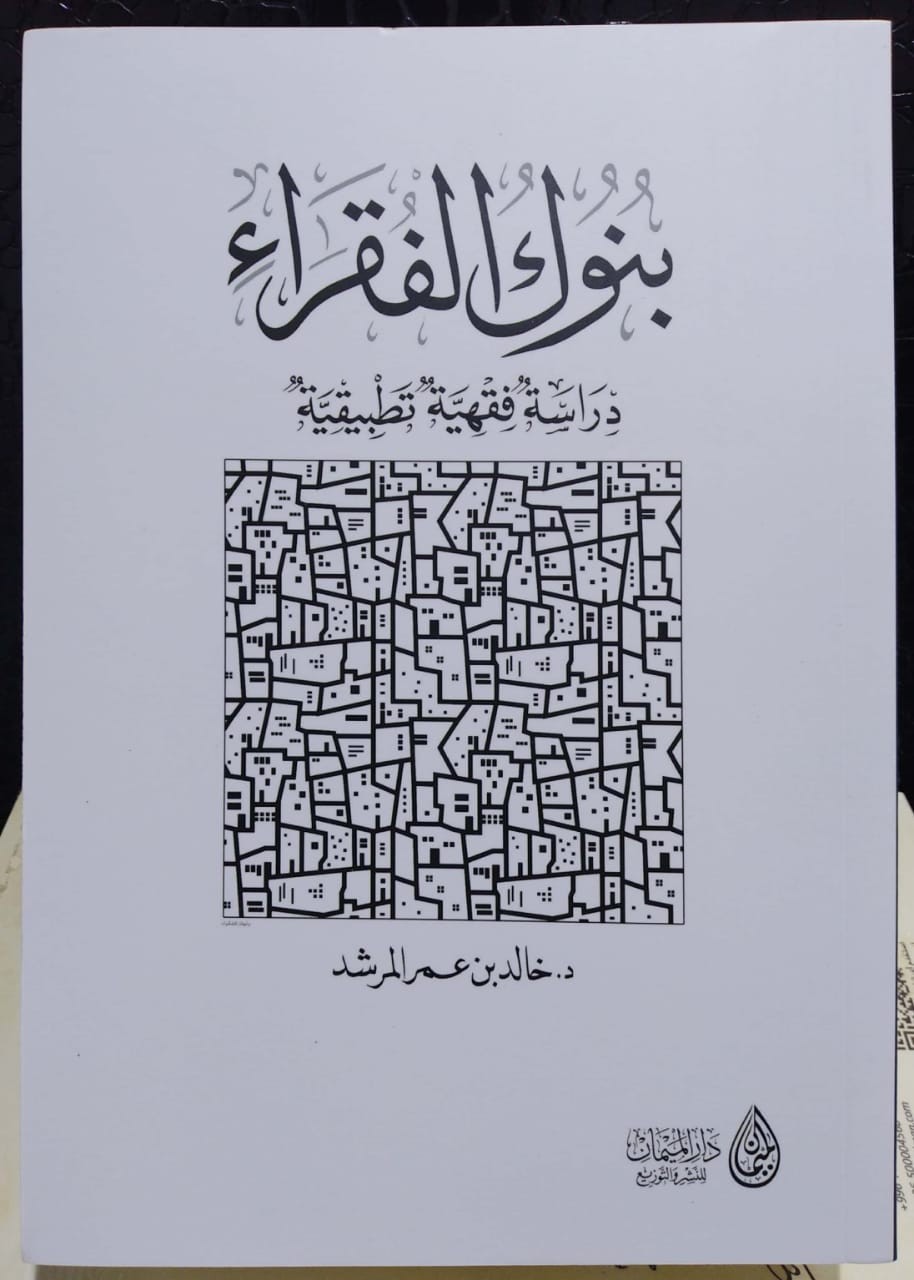 بنُوُكُ الفُقَرَاءِ
دِرَاسَةٌ فِقْهِيَّةٌ تَطْبِيْقِيَّةٌ
د. خالد بن عمر المرشد
دَارُ المَيْمَانْ
لِلنَّشْرِ وَالتَّوْزِيْع
الميمان